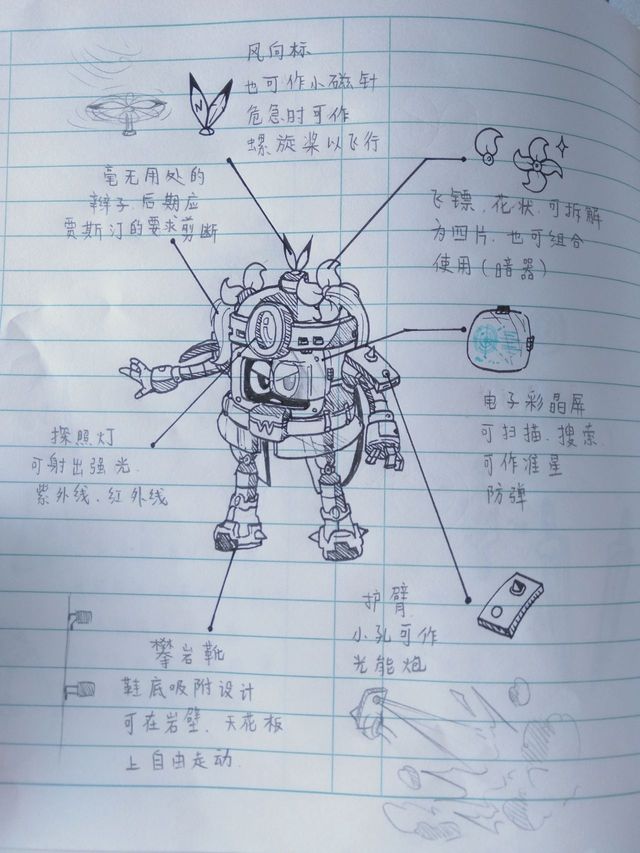 风向标
也可作小磁针
危急时可作
螺旋桨以飞行
N
毫无用处的
辫子.后期应
贾斯汀的要求剪断
飞镖.花状.可拆解
为四片.也可组合
使用(暗器)
电子彩晶屏
可扫描.搜索.
可作准星
防弹
探照灯
可射出强光.
紫外线.红外线
W
护臂
小孔可作
光能炮
攀岩靴
鞋底吸附设计
可在岩壁、天花板
上自由走动.